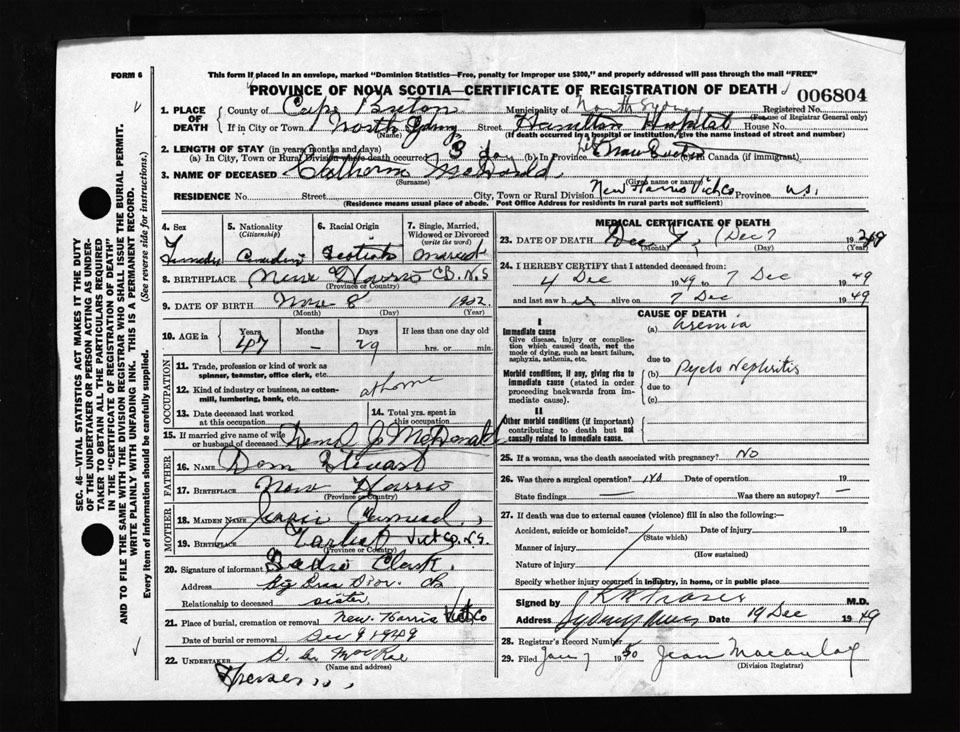 FORM 6
This form if placed in an envelope, marked "Dominion Statistics—Free, penalty for improper use $300," and properly addressed will pass through the mail "FREE"
PROVINCE OF NOVA SCOTIA—CERTIFICATE OF REGISTRATION OF DEATH
006804
1. PLACE OF DEATH
County of Cape Breton Municipality of North Sydney Registered No.
(For use of Registrar General only)
If in City or Town North Sydney Street Hamilton Hospital House No.
(Name) (If death occurred in a hospital or institution, give the name instead of street and number)
2. LENGTH OF STAY (in years, months and days)
(a) In City, Town or Rural Division where death occurred 3 da (b) In Province (c) in Canada (if immigrant)
3. NAME OF DECEASED
(Surname) (Given name or names)
RESIDENCE No. Street City, Town or Rural Division New Harris Vict Co Province N.S.
(Residence means usual place of abode. Post Office Address for residents in rural parts not sufficient)
4. Sex
5. Nationality (Citizenship)
6. Racial Origin
7. Single, Married, Widowed or Divorced (write the word)
Canadian Scotish Married
8. BIRTHPLACE New Harris C.B. N.S
(Province or Country)
9. DATE OF BIRTH Nov 8 1902
(Month) (Day) (Year)
10. AGE in
Years Months Days If less than one day
47 — 29 hrs. or min.
OCCUPATION
11. Trade, profession or kind of work as spinner, teamster, office clerk, etc.
12. Kind of industry or business, as cotton-mill, lumbering, bank, etc. at home
13. Date deceased last worked at this occupation
14. Total yrs. spent in this occupation
15. If married give name of wife or husband of deceased J. McDonald
FATHER
16. NAME Stewart
17. Birthplace New Harris
(Province or Country)
MOTHER
18. MAIDEN NAME
19. BIRTHPLACE Tarbot Vict Co. N.S.
(Province or Country)
20. Signature of informant Sadie Clark
Address Big Bras D'Or. CB
Relationship to deceased sister
21. Place of burial, cremation or removal New Harris Vict Co
Date of burial or removal Dec 9 1949
22. UNDERTAKER MacRae
(Name and address)
MEDICAL CERTIFICATE OF DEATH
23. DATE OF DEATH Dec 7, (Dec 7 1949
(Month) (Day) (Year)
24. I HEREBY CERTIFY that I attended deceased from:
4 Dec 1949 to 7 Dec 1949
and last saw her alive on 7 Dec 1949
CAUSE OF DEATH
I
Immediate cause
Give disease, injury or complication which caused death, not the mode of dying, such as heart failure, asphyxia, asthenia, etc.
(a) Uremia
due to
Morbid conditions, if any, giving rise to immediate cause (stated in order proceeding backwards from immediate cause).
(b) Pyelo Nephritis
due to
(c)
II
Other morbid conditions (if important) contributing to death but not causally related to immediate cause.
25. If a woman, was the death associated with pregnancy? No
26. Was there a surgical operation? No Date of operation 19
State findings — Was there an autopsy? —
27. If death was due to external causes (violence) fill in also the following:—
Accident, suicide or homicide? Date of injury 19
(State which)
Manner of injury
(How sustained)
Nature of injury
Specify whether injury occurred in industry, in home, or in public place
Signed by Fraser M.D.
Address Sydney Mines Date 19 Dec 1949
28. Registrar's Record Number
29. Filed Jan 7 1950 Jean Macaulay
(Division Registrar)
SEC. 46—VITAL STATISTICS ACT MAKES IT THE DUTY
OF THE UNDERTAKER OR PERSON ACTING AS UNDER-
TAKER TO OBTAIN ALL THE PARTICULARS REQUIRED
IN THE "CERTIFICATE OF REGISTRATION OF DEATH"
AND TO FILE THE SAME WITH THE DIVISION REGISTRAR WHO SHALL ISSUE THE BURIAL PERMIT.
WRITE PLAINLY WITH UNFADING INK. THIS IS A PERMANENT RECORD.
Every item of information should be carefully supplied. (See reverse side for instructions).